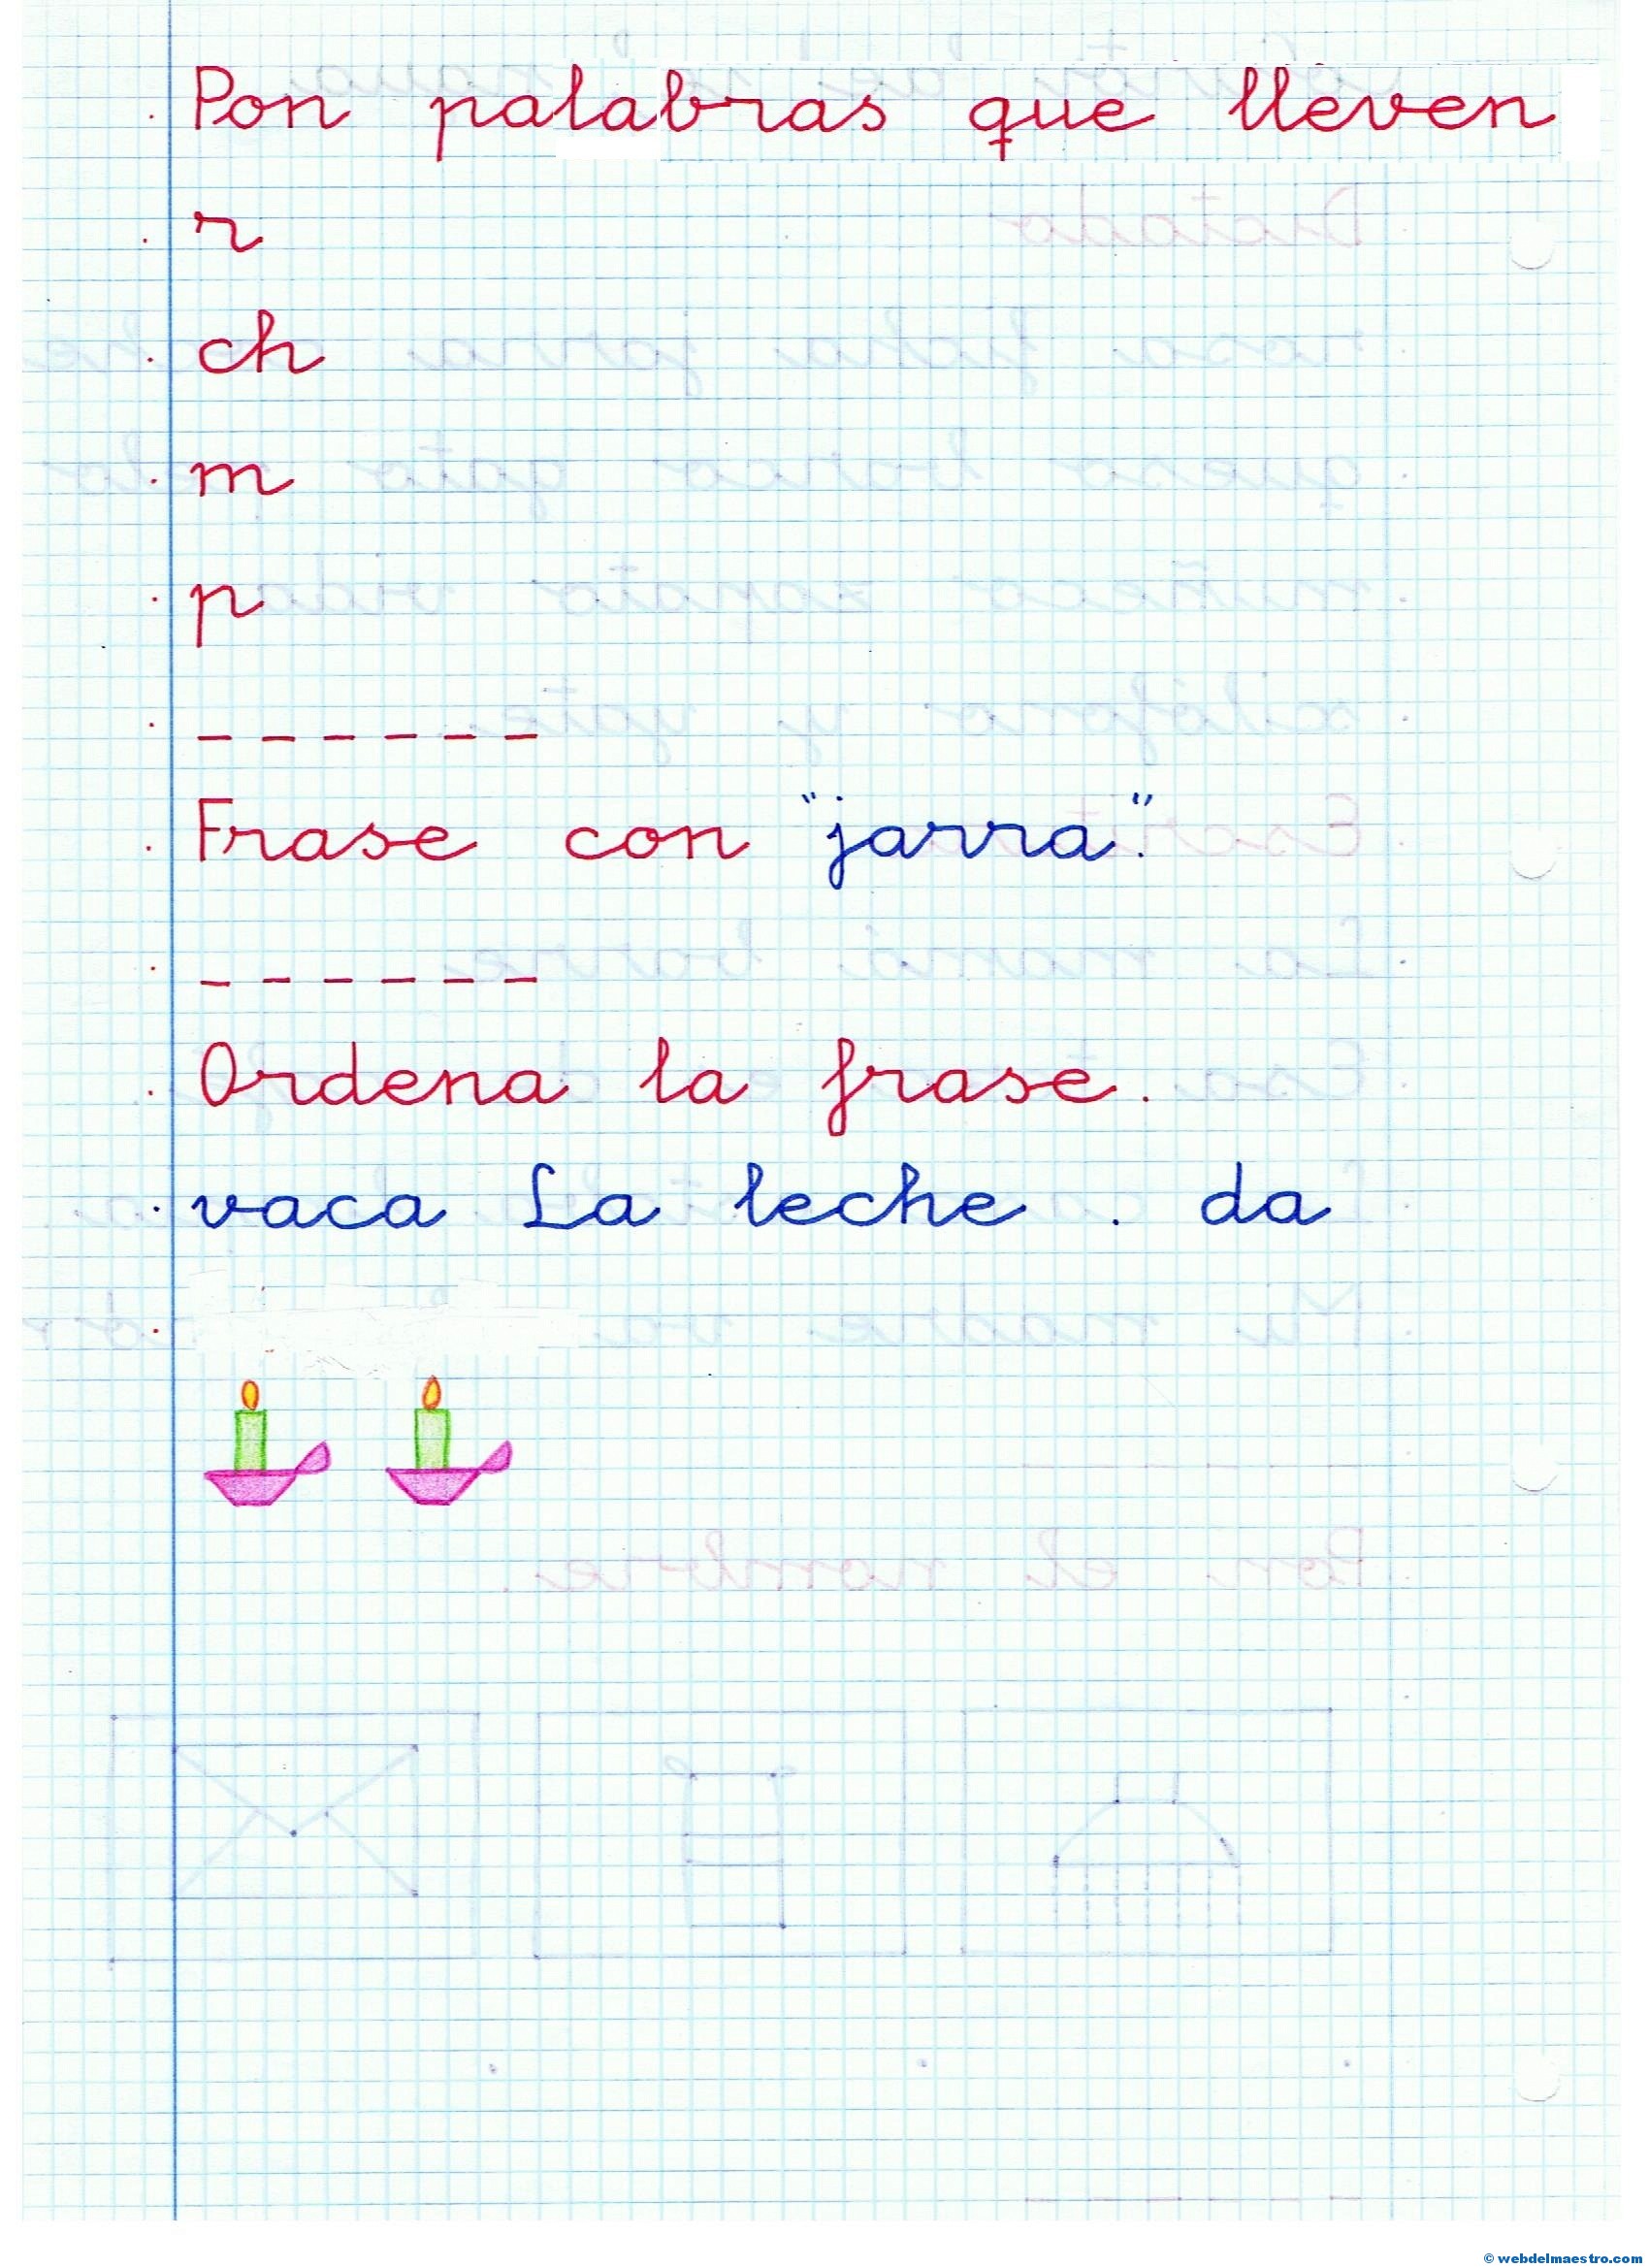 Pon palabras que lleven
r
ch
m
p
- - - - - -
Frase con "jarra".
- - - - - -
Ordena la frase.
vaca La leche . da
© webdelmaestro.com